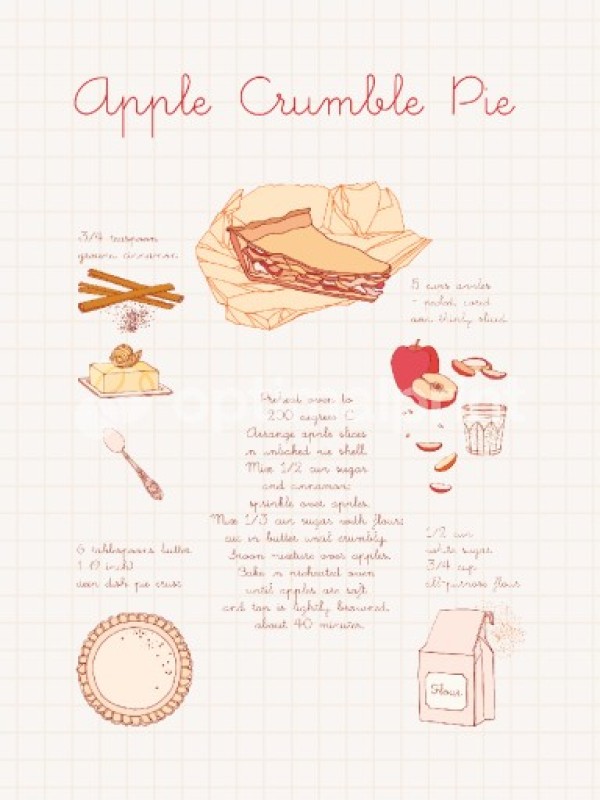 Apple Crumble Pie
3/4 teaspoon
ground cinnamon
5 cups apples
- peeled, cored
and thinly sliced
Preheat oven to
200 degrees C.
Arrange apple slices
in unbaked pie shell.
Mix 1/2 cup sugar
and cinnamon;
sprinkle over apples.
Mix 1/3 cup sugar with flour;
cut in butter until crumbly.
Spoon mixture over apples.
Bake in preheated oven
until apples are soft
and top is lightly browned,
about 40 minutes.
6 tablespoons butter
1 (9 inch)
deep dish pie crust
1/2 cup
white sugar
3/4 cup
all-purpose flour
Flour